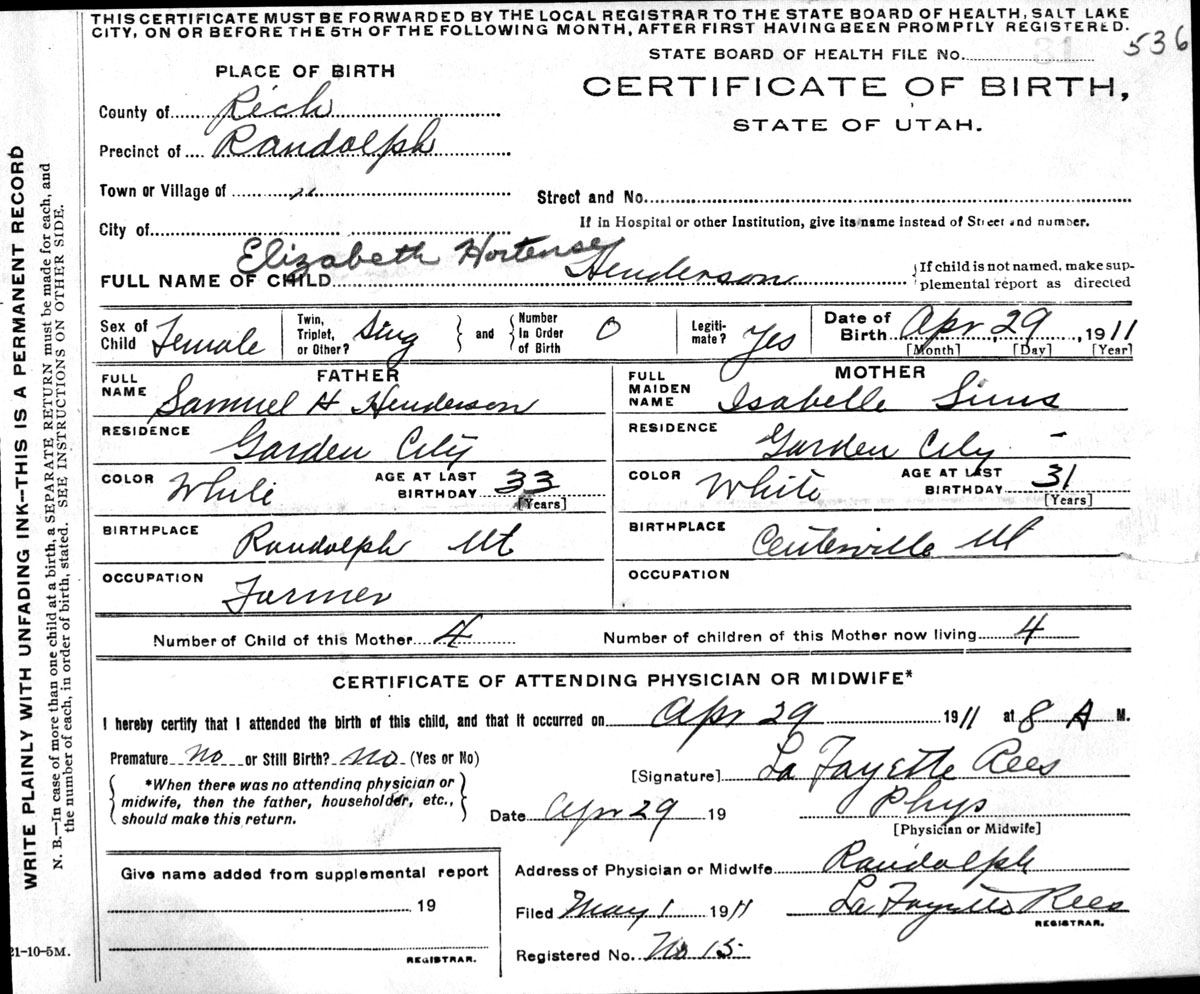 THIS CERTIFICATE MUST BE FORWARDED BY THE LOCAL REGISTRAR TO THE STATE BOARD OF HEALTH, SALT LAKE
CITY, ON OR BEFORE THE 5TH OF THE FOLLOWING MONTH, AFTER FIRST HAVING BEEN PROMPTLY REGISTERED.
536
STATE BOARD OF HEALTH FILE No. 31
PLACE OF BIRTH
CERTIFICATE OF BIRTH,
STATE OF UTAH.
County of Rich
Precinct of Randolph
Town or Village of "
Street and No.
If in Hospital or other Institution, give its name instead of Street and number.
City of
Elizabeth Hortense
FULL NAME OF CHILD Henderson
If child is not named, make sup-
plemental report as directed
Sex of Child Female Twin, Triplet, or Other? Sing and Number in Order of Birth 0 Legiti-mate? Yes Date of Birth Apr. 29, 1911
[Month] [Day] [Year]
FATHER MOTHER
FULL NAME Samuel H Henderson FULL MAIDEN NAME Isabelle Sims
RESIDENCE Garden City RESIDENCE Garden City -
COLOR White AGE AT LAST BIRTHDAY 33 [Years] COLOR White AGE AT LAST BIRTHDAY 31 [Years]
BIRTHPLACE Randolph Ut BIRTHPLACE Centerville Ut
OCCUPATION Farmer OCCUPATION
Number of Child of this Mother 4 Number of children of this Mother now living 4
CERTIFICATE OF ATTENDING PHYSICIAN OR MIDWIFE*
I hereby certify that I attended the birth of this child, and that it occurred on Apr 29 1911 at 8 A M.
Premature No or Still Birth? No (Yes or No)
*When there was no attending physician or
midwife, then the father, householder, etc.,
should make this return.
[Signature] La Fayette Rees
Date Apr 29 19 Phys
[Physician or Midwife]
Address of Physician or Midwife Randolph
Filed May 1 1911 La Fayette Rees
REGISTRAR.
Registered No. No 15
Give name added from supplemental report
19
REGISTRAR.
21-10-5M.
WRITE PLAINLY WITH UNFADING INK—THIS IS A PERMANENT RECORD
N. B.—In case of more than one child at a birth, a SEPARATE RETURN must be made for each, and
the number of each, in order of birth, stated. SEE INSTRUCTIONS ON OTHER SIDE.